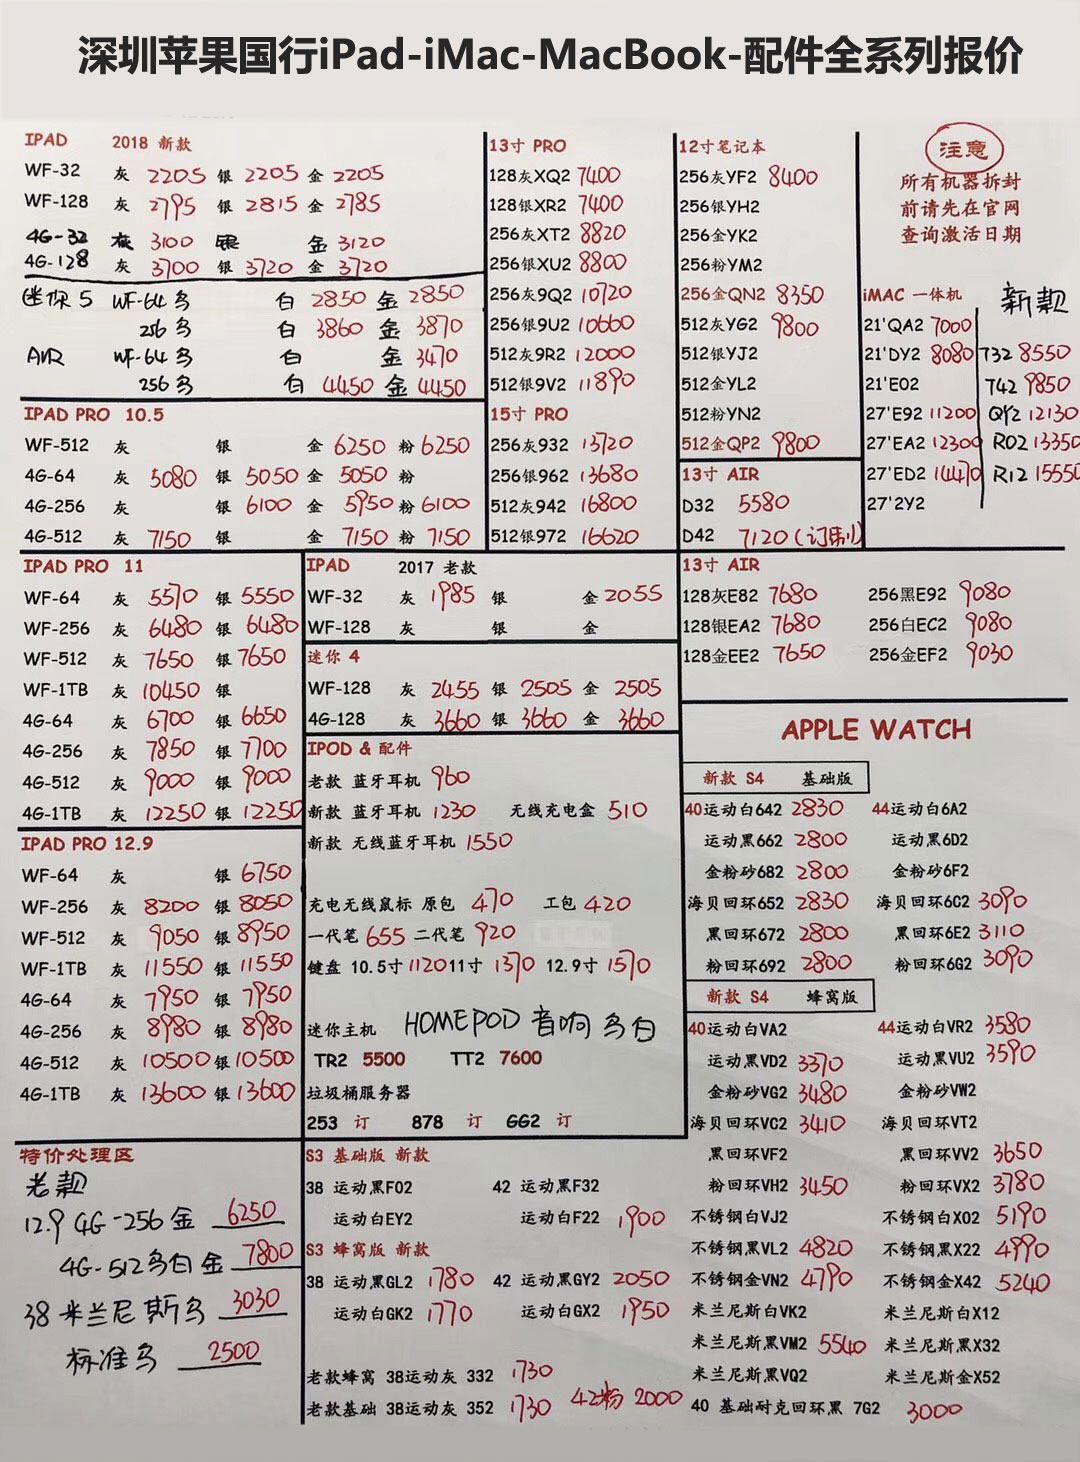 深圳苹果国行iPad-iMac-MacBook-配件全系列报价
IPAD 2018 新款
WF-32 灰 2205 银 2205 金 2205
WF-128 灰 2795 银 2815 金 2785
4G-32 灰 3100 银 金 3120
4G-128 灰 3700 银 3720 金 3720
迷你 5 WF-64 乌 白 2850 金 2850
256 乌 白 3860 金 3870
AIR WF-64 乌 白 金 3470
256 乌 白 4450 金 4450
IPAD PRO 10.5
WF-512 灰 银 金 6250 粉 6250
4G-64 灰 5080 银 5050 金 5050 粉
4G-256 灰 银 6100 金 5950 粉 6100
4G-512 灰 7150 银 金 7150 粉 7150
13寸 PRO
128灰XQ2 7400
128银XR2 7400
256灰XT2 8820
256银XU2 8800
256灰9Q2 10720
256银9U2 10660
512灰9R2 12000
512银9V2 11890
15寸 PRO
256灰932 13720
256银962 13680
512灰942 16800
512银972 16620
12寸笔记本
256灰YF2 8400
256银YH2
256金YK2
256粉YM2
256金QN2 8350
512灰YG2 9800
512银YJ2
512金YL2
512粉YN2
512金QP2 9800
13寸 AIR
D32 5580
D42 7120(订制)
注意
所有机器拆封
前请先在官网
查询激活日期
iMAC 一体机 新款
21'QA2 7000
21'DY2 8080 T32 8550
21'E02 T42 9850
27'E92 11200 QY2 12130
27'EA2 12300 R02 13350
27'ED2 14470 R12 15550
27'2Y2
IPAD PRO 11
WF-64 灰 5570 银 5550
WF-256 灰 6480 银 6480
WF-512 灰 7650 银 7650
WF-1TB 灰 10450 银
4G-64 灰 6700 银 6650
4G-256 灰 7850 银 7700
4G-512 灰 9000 银 9000
4G-1TB 灰 12250 银 12250
IPAD PRO 12.9
WF-64 灰 银 6750
WF-256 灰 8200 银 8050
WF-512 灰 9050 银 8950
WF-1TB 灰 11550 银 11550
4G-64 灰 7950 银 7950
4G-256 灰 8980 银 8980
4G-512 灰 10500 银 10500
4G-1TB 灰 13600 银 13600
IPAD 2017 老款
WF-32 灰 1985 银 金 2055
WF-128 灰 银 金
迷你 4
WF-128 灰 2455 银 2505 金 2505
4G-128 灰 3660 银 3660 金 3660
IPOD & 配件
老款 蓝牙耳机 960
新款 蓝牙耳机 1230 无线充电盒 510
新款 无线蓝牙耳机 1550
充电无线鼠标 原包 470 工包 420
一代笔 655 二代笔 920
键盘 10.5寸 1120 11寸 1370 12.9寸 1570
迷你主机 HOMEPOD 音响 乌白
TR2 5500 TT2 7600
垃圾桶服务器
253 订 878 订 GG2 订
13寸 AIR
128灰E82 7680 256黑E92 9080
128银EA2 7680 256白EC2 9080
128金EE2 7650 256金EF2 9030
APPLE WATCH
新款 S4 基础版
40运动白642 2830 44运动白6A2
运动黑662 2800 运动黑6D2
金粉砂682 2800 金粉砂6F2
海贝回环652 2830 海贝回环6C2 3090
黑回环672 2800 黑回环6E2 3110
粉回环692 2800 粉回环6G2 3090
新款 S4 蜂窝版
40运动白VA2 44运动白VR2 3580
运动黑VD2 3370 运动黑VU2 3590
金粉砂VG2 3480 金粉砂VW2
海贝回环VC2 3410 海贝回环VT2
黑回环VF2 黑回环VV2 3650
粉回环VH2 3450 粉回环VX2 3780
不锈钢白VJ2 不锈钢白X02 5190
不锈钢黑VL2 4820 不锈钢黑X22 4990
不锈钢金VN2 4790 不锈钢金X42 5240
米兰尼斯白VK2 米兰尼斯白X12
米兰尼斯黑VM2 5540 米兰尼斯黑X32
米兰尼斯黑VQ2 米兰尼斯金X52
40 基础耐克回环黑 7G2 3000
特价处理区
老款
12.9 4G-256 金 6250
4G-512 乌白金 7800
38 米兰尼斯乌 3030
标准乌 2500
S3 基础版 新款
38 运动黑F02 42 运动黑F32
运动白EY2 运动白F22 1900
S3 蜂窝版 新款
38 运动黑GL2 1780 42 运动黑GY2 2050
运动白GK2 1770 运动白GX2 1950
老款蜂窝 38运动灰 332 1730
老款基础 38运动灰 352 1730 42粉 2000